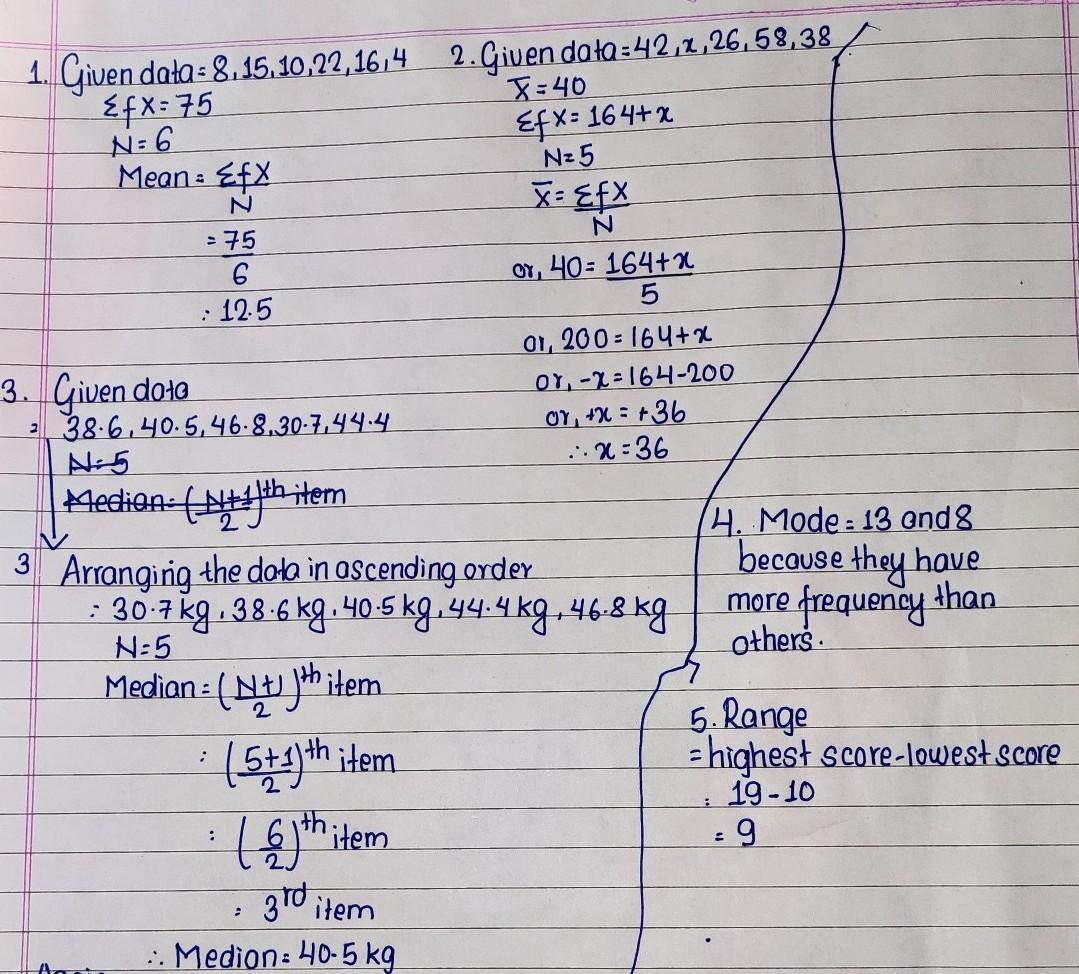 1. Given data = 8, 15, 10, 22, 16, 4
ΣfX = 75
N = 6
Mean = ΣfX
N
= 75
6
: 12.5
2. Given data = 42, x, 26, 58, 38
X̅ = 40
ΣfX = 164 + x
N = 5
X̅ = ΣfX
N
or, 40 = 164 + x
5
or, 200 = 164 + x
or, -x = 164 - 200
or, +x = +36
∴ x = 36
3. Given data
= 38.6, 40.5, 46.8, 30.7, 44.4
N = 5
Median = (N+1)th item
2
3 Arranging the data in ascending order
: 30.7 kg, 38.6 kg, 40.5 kg, 44.4 kg, 46.8 kg
N = 5
Median = (N+1)th item
2
: (5+1)th item
2
: (6)th item
2
= 3rd item
∴ Median = 40.5 kg
4. Mode = 13 and 8
because they have
more frequency than
others.
5. Range
= highest score - lowest score
: 19 - 10
= 9